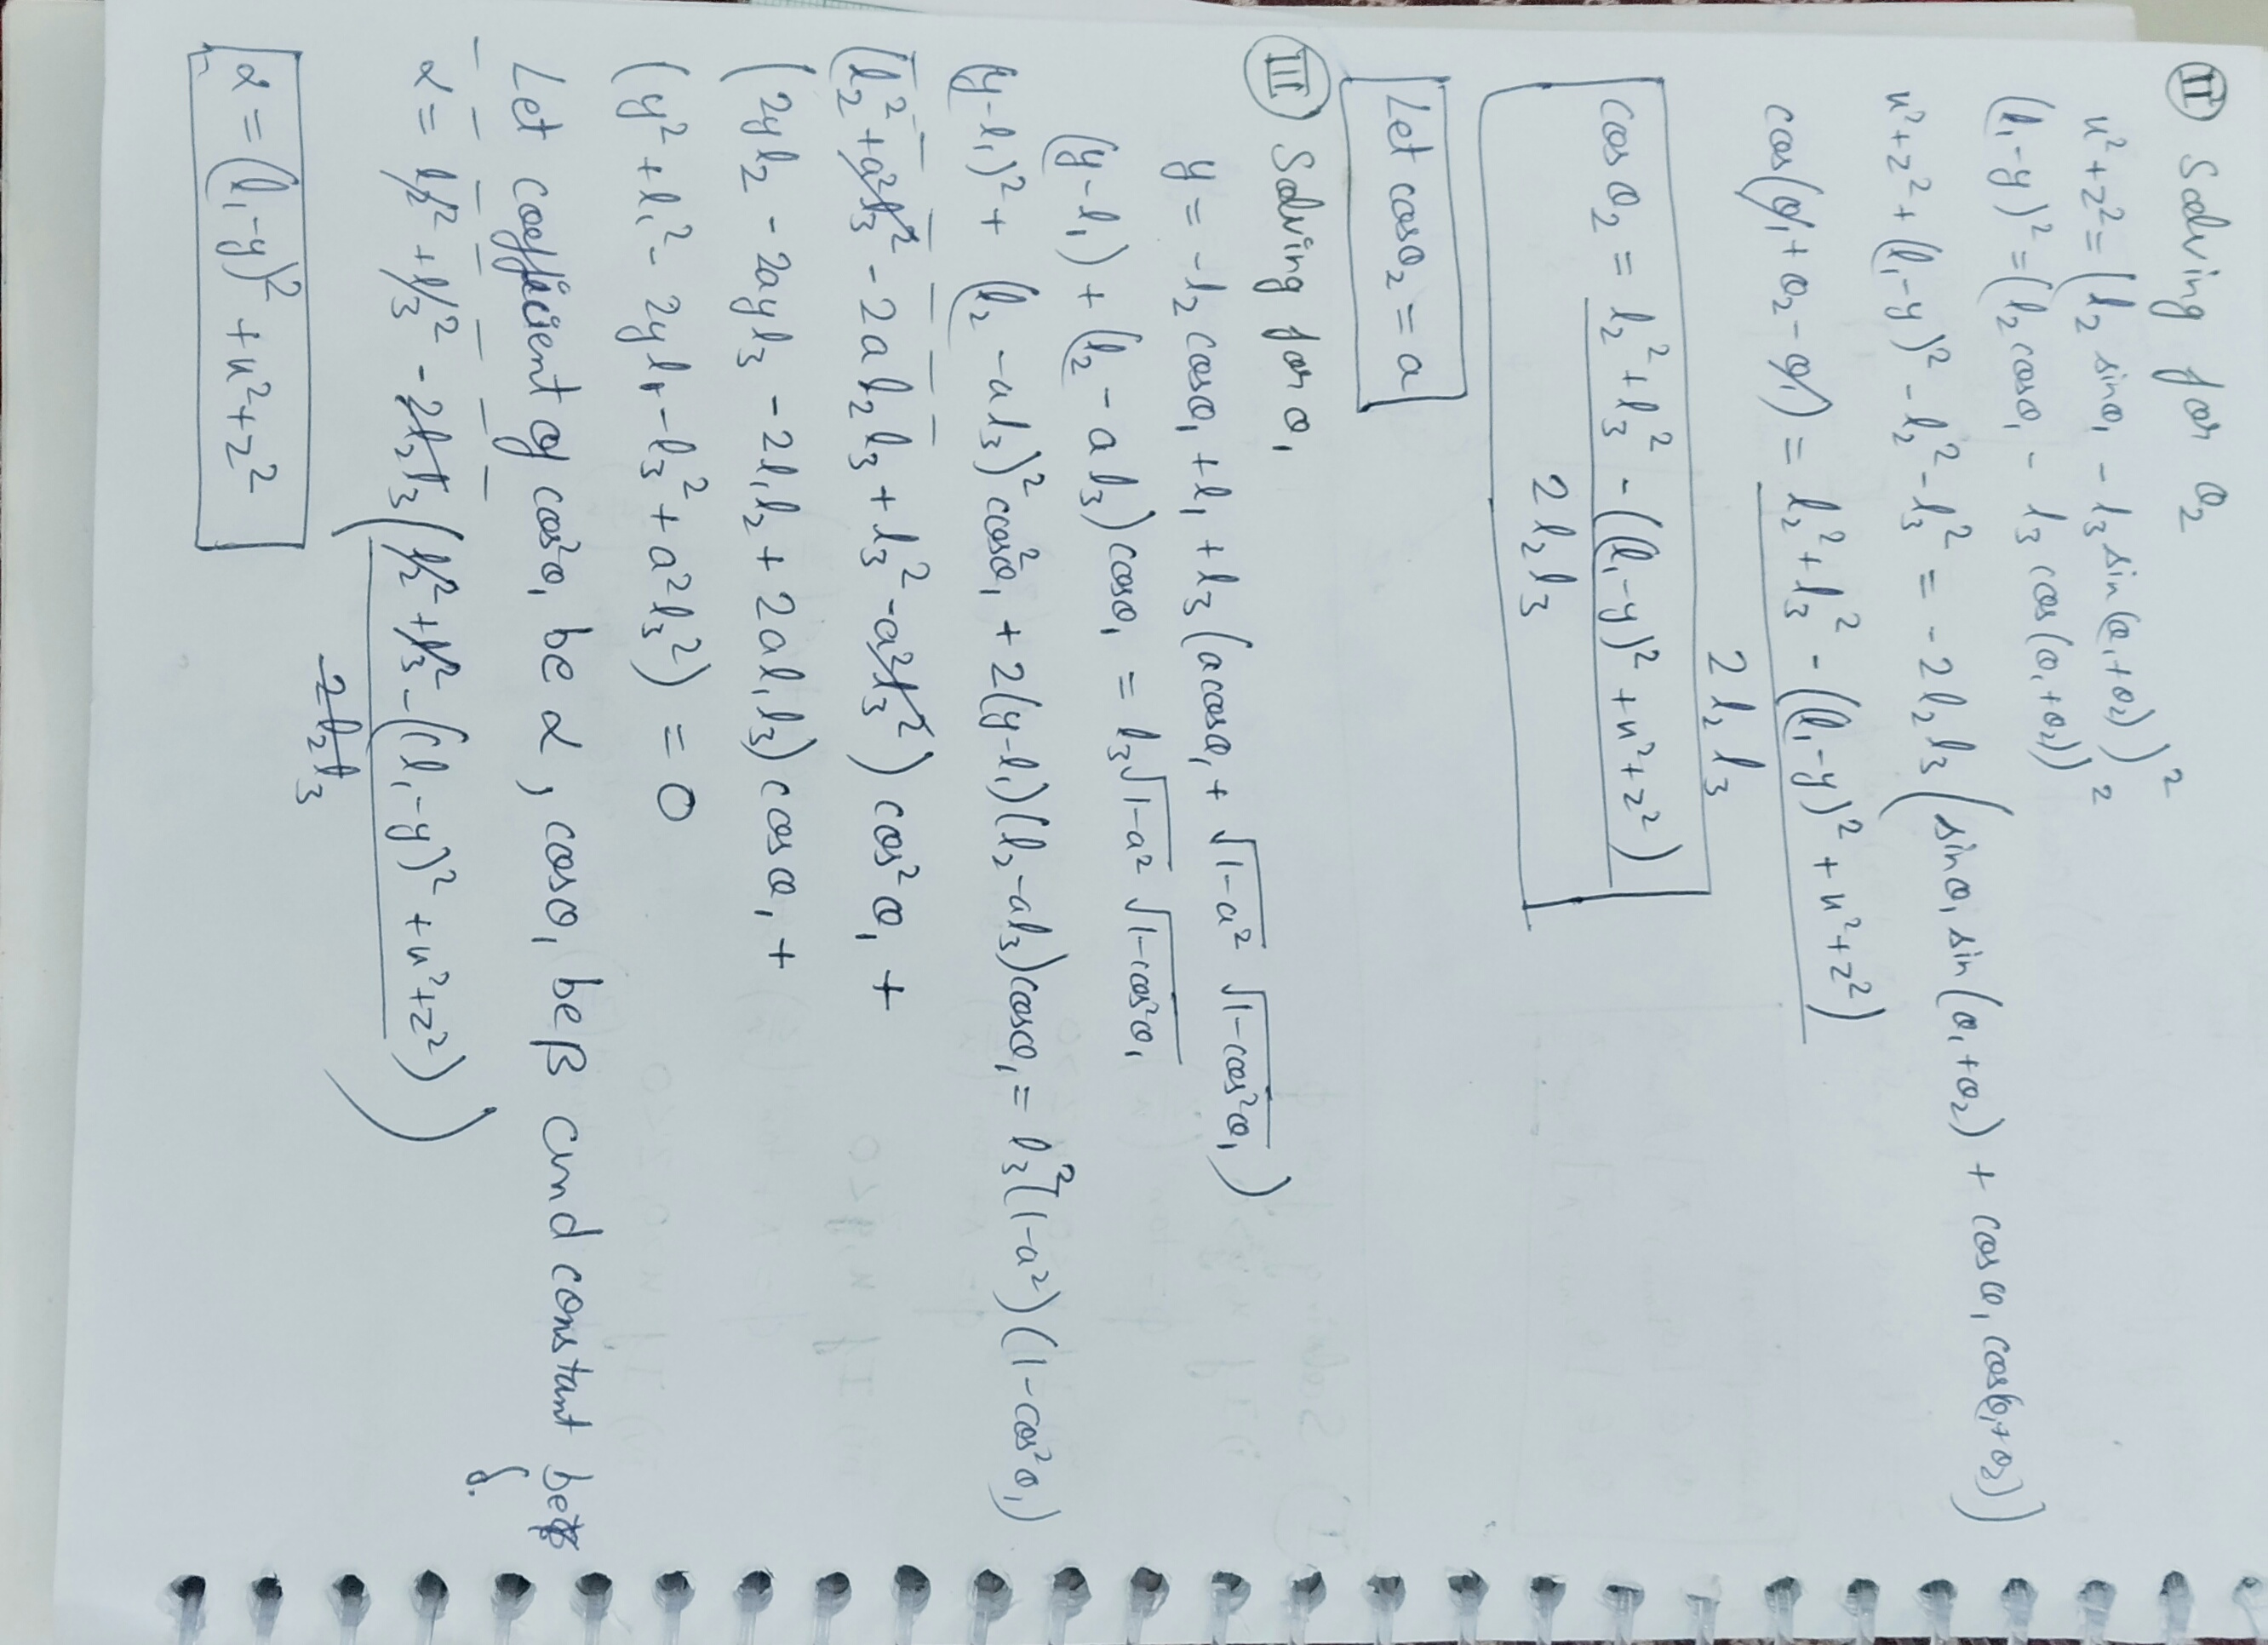 Ⅱ Solving for θ₂
x²+z² = (l₂ sinθ₁ - l₃ sin(θ₁+θ₂))²
(l₁-y)² = (l₂ cosθ₁ - l₃ cos(θ₁+θ₂))²
x²+z²+(l₁-y)²-l₂²-l₃² = -2l₂l₃(sinθ₁ sin(θ₁+θ₂) + cosθ₁ cos(θ₁+θ₂))
cos(θ₁+θ₂-θ₁) = (l₂²+l₃²-((l₁-y)²+x²+z²))/(2l₂l₃)
cosθ₂ = (l₂²+l₃²-((l₁-y)²+x²+z²))/(2l₂l₃)
Let cosθ₂ = a
Ⅲ Solving for θ₁
y = -l₂ cosθ₁ + l₁ + l₃(a cosθ₁ + √(1-a²) √(1-cos²θ₁))
(y-l₁) + (l₂-al₃) cosθ₁ = l₃√(1-a²) √(1-cos²θ₁)
(y-l₁)² + (l₂-al₃)² cos²θ₁ + 2(y-l₁)(l₂-al₃)cosθ₁ = l₃²(1-a²)(1-cos²θ₁)
(l₂²+a²l₃²-2al₂l₃+l₃²-a²l₃²) cos²θ₁ +
(2yl₂-2ayl₃-2l₁l₂+2al₁l₃) cosθ₁ +
(y²+l₁²-2yl₁-l₃²+a²l₃²) = 0
Let coefficient of cos²θ₁ be α, cosθ₁ be β and constant be
δ.
α = l₂²+l₃²-2l₂l₃((l₂²+l₃²-((l₁-y)²+x²+z²))/(2l₂l₃))
α = (l₁-y)²+x²+z²